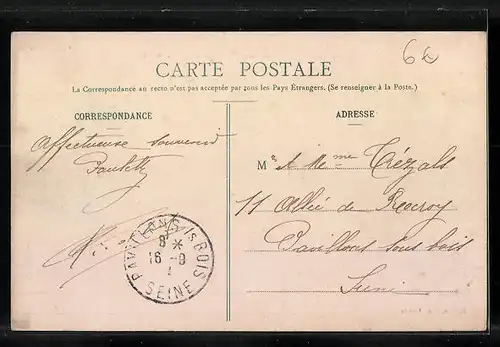 6€
CARTE POSTALE
La Correspondance au recto n'est pas acceptée par tous les Pays Étrangers. (Se renseigner à la Poste.)
CORRESPONDANCE
ADRESSE
Affectueux souvenir
M r et Mme Trézals
11 Allée de Rocroy
Pavillons sous bois
Seine
PAVILLONS s/s BOIS
8 *
16 - 9
SEINE